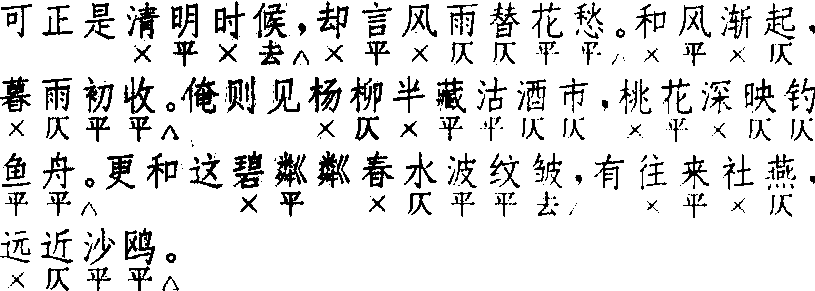 可正是清明时候,却言风雨替花愁。和风渐起,
× 平 × 去 ∧ × 平 × 仄 仄 平 平 ∧ × 平 × 仄
暮雨初收。俺则见杨柳半藏沽酒市,桃花深映钓
× 仄 平 平 ∧ × 仄 × 平 平 仄 仄 × 平 × 仄 仄
鱼舟。更和这碧粼粼春水波纹皱,有往来社燕,
平 平 ∧ × 平 × 仄 平 平 去 ∧ × 平 × 仄
远近沙鸥。
× 仄 平 平 ∧